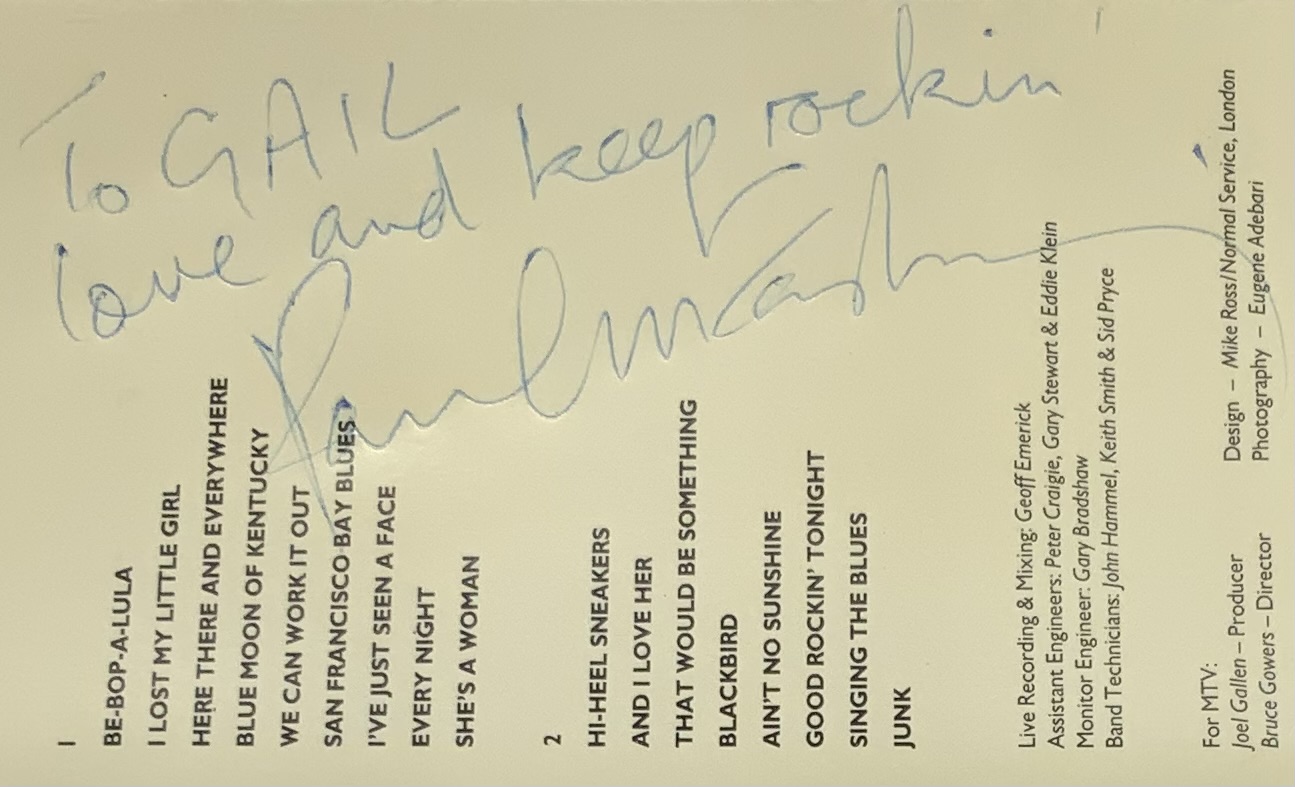 To GAIL
love and keep rockin'
Paul McCartney
1
BE-BOP-A-LULA
I LOST MY LITTLE GIRL
HERE THERE AND EVERYWHERE
BLUE MOON OF KENTUCKY
WE CAN WORK IT OUT
SAN FRANCISCO BAY BLUES
I'VE JUST SEEN A FACE
EVERY NIGHT
SHE'S A WOMAN
2
HI-HEEL SNEAKERS
AND I LOVE HER
THAT WOULD BE SOMETHING
BLACKBIRD
AIN'T NO SUNSHINE
GOOD ROCKIN' TONIGHT
SINGING THE BLUES
JUNK
Live Recording & Mixing: Geoff Emerick
Assistant Engineers: Peter Craigie, Gary Stewart & Eddie Klein
Monitor Engineer: Gary Bradshaw
Band Technicians: John Hammel, Keith Smith & Sid Pryce
For MTV:
Joel Gallen – Producer
Bruce Gowers – Director
Design – Mike Ross/Normal Service, London
Photography – Eugene Adebari